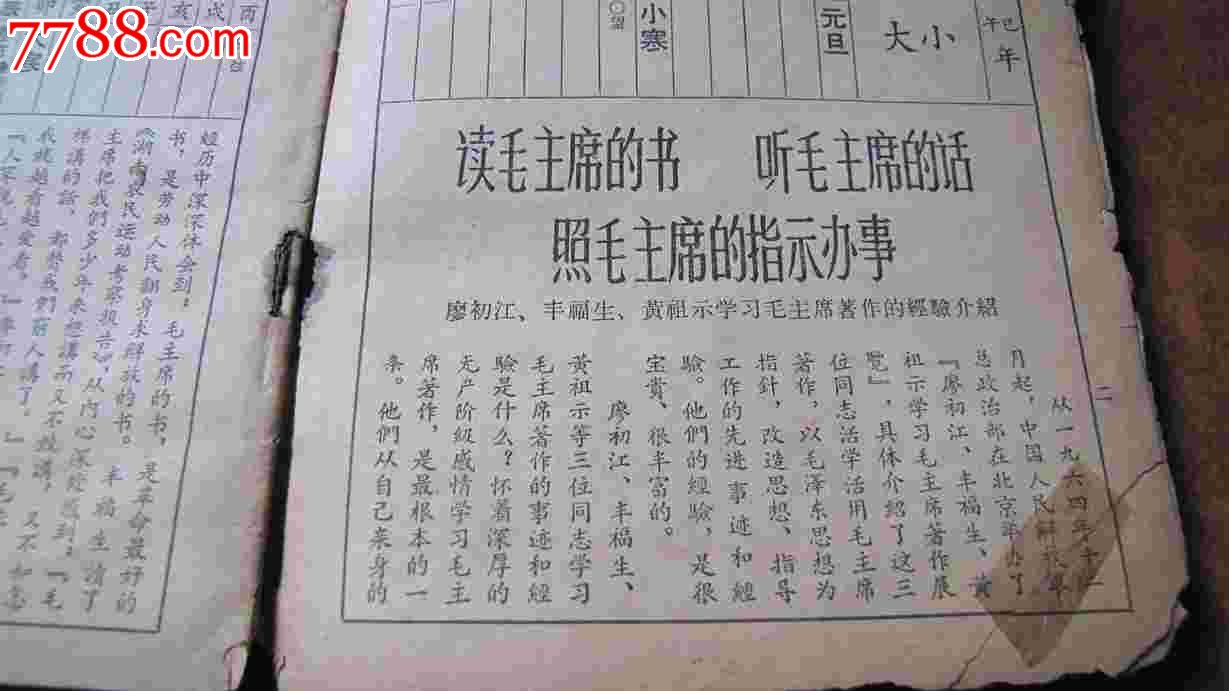 7788.com
巳午年
大小
元旦
小寒
〇望
读毛主席的书 听毛主席的话
照毛主席的指示办事
廖初江、丰福生、黄祖示学习毛主席著作的經驗介紹
二
从一九六四年十二
月起，中国人民解放軍
总政治部在北京举办了
『廖初江、丰福生、黄
祖示学习毛主席著作展
览』，具体介绍了这三
位同志活学活用毛主席
著作，以毛泽东思想为
指针，改造思想、指导
工作的先进事迹和經
驗。他們的經驗，是很
宝貴、很丰富的。
廖初江、丰福生、
黄祖示等三位同志学习
毛主席著作的事迹和經
驗是什么？怀着深厚的
无产阶级感情学习毛主
席著作，是最根本的一
条。他們从自己来身的
經历中深深体会到：毛主席的书，是革命最好的
书，是劳动人民翻身求解放的书。丰福生讀了
《湖南农民运动考察报告》，从内心深处感到：『毛
主席把我們多少年来想講而又不敢講，又不知怎
样講的話，都替我們穷人講了。
我越看越爱看。